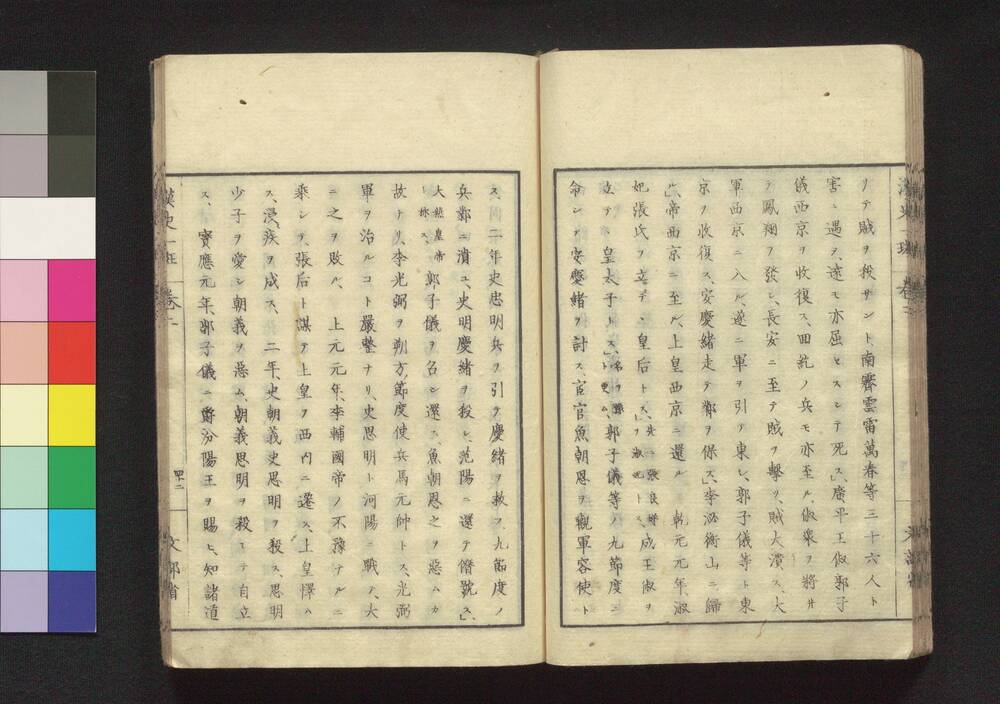 リテ賊ヲ殺サント、南霽雲雷萬春等三十六人ト
害ニ遇ヲ、遠モ亦屈セスシテ死ス」廣平王俶郭子
儀西京ヲ收復ス、回紇ノ兵モ亦至ル、俶衆ヲ將井
テ鳳翔ヲ發シ、長安ニ至テ賊ヲ擊ツ、賊大潰ス、大
軍西京ニ入ル、遂ニ軍ヲ引テ東シ、郭子儀等ト東
京ヲ收復ス、安慶緒走テ鄴ヲ保ス」李泌衡山ニ歸
ル」帝西京ニ至ル、上皇西京ニ還ル 乾元元年、淑
妃張氏ヲ立テ、皇后トス、先ニ張良娣ヲ淑妃トス、成王俶ヲ
立テ、皇太子トス、名ヲ豫ト更ム、郭子儀等ノ九節度ニ
命シテ安慶緒ヲ討ス、宦官魚朝恩ヲ觀軍容使ト
ス 二年史思明兵ヲ引テ慶緒ヲ救フ、九節度ノ
兵鄴ニ潰ユ、史明慶緒ヲ殺シ、范陽ニ還テ僭號ス」、
大燕皇帝ト称ス、郭子儀ヲ召シ還ス、魚朝恩之ヲ惡ムカ
故ナリ、李光弼ヲ朔方節度使兵馬元帥トス、光弼
軍ヲ治ルコト嚴整ナリ、史思明ト河陽ニ戰テ、大
ニ之ヲ敗ル、 上元元年、李輔國帝ノ不豫ナルニ
乘シテ、張后ト謀テ上皇ヲ西内ニ遷ス、上皇懌ハ
ス、浸疾ヲ成ス、 二年、史朝義史思明ヲ殺ス、思明
少子ヲ愛シ朝義ヲ惡ム、朝義思明ヲ殺シテ自立
ス、 寶應元年、郭子儀ニ爵汾陽王ヲ賜ヒ、知諸道
漢史一班 卷二
四十二
文部省